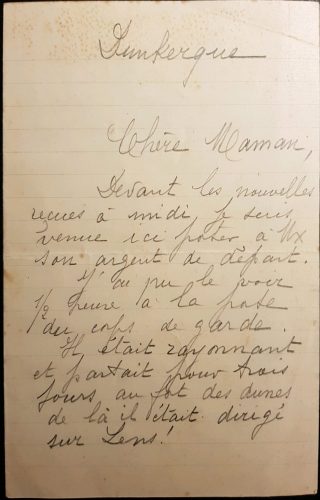 Dunkerque
Chère Maman,
Devant les nouvelles
reçues à midi, je suis
venue ici porter à
son argent de départ.
J'ai pu le voir
1/2 heure à la porte
du corps de garde.
Il était rayonnant
et partait pour trois
jours au fort des dunes
de là il était dirigé
sur Lens!